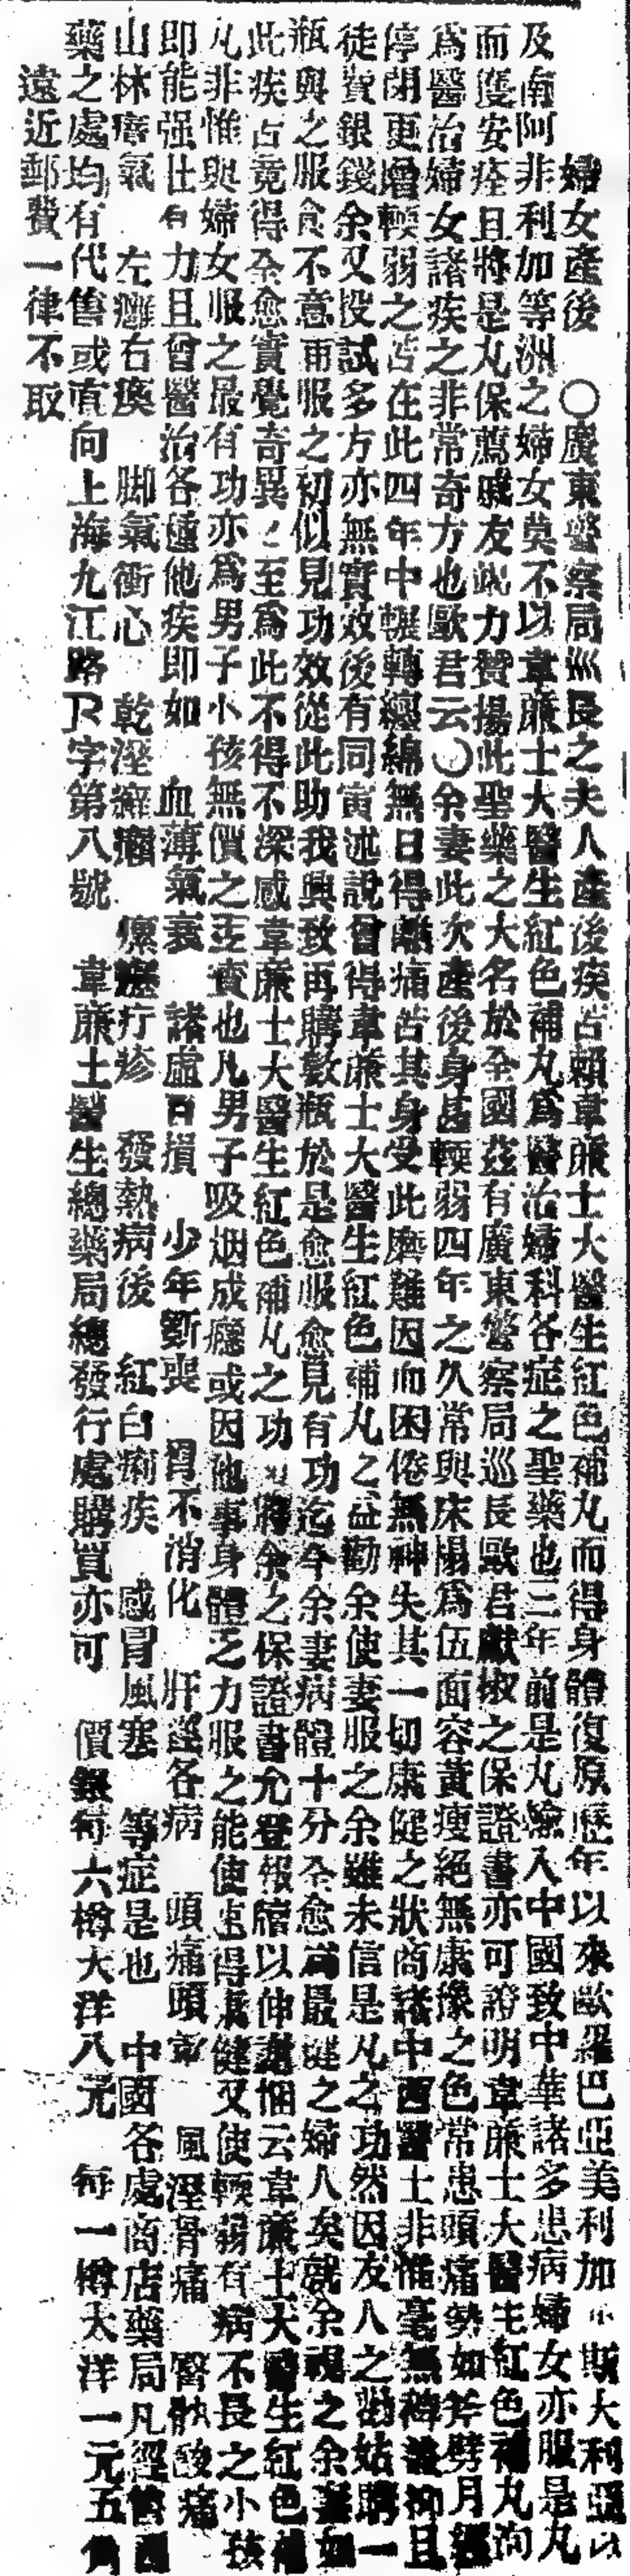 婦女產後　○廣東警察局巡長之夫人產後疾占賴韋廉士大醫生紅色補丸而得身體復原歷年以來歐羅巴亞美利加 斯大利亞以
及南阿非利加等洲之婦女莫不以韋廉士大醫生紅色補丸爲醫治婦科各症之聖藥也三年前是丸輸入中國致中華諸多患病婦女亦服是丸
而獲安痊且將是丸保薦戚友竭力贊揚此聖藥之大名於全國茲有廣東警察局巡長歐君獻椒之保證書亦可證明韋廉士大醫生紅色補丸洵
爲醫治婦女諸疾之非常奇方也歐君云○余妻此次產後身甚輭弱四年之久常與床榻爲伍面容黃瘦絕無康豫之色常患頭痛勢如斧劈月經
停閉更增輭弱之苦在此四年中輾轉纏綿無日得離痛苦其身受此磨難因而困倦無神失其一切康健之狀商諸中西醫士非惟毫無裨益抑且
徒費銀錢余又投試多方亦無實效後有同寅述說曾得韋廉士大醫生紅色補丸之益勸余使妻服之余雖未信是丸之功然因友人之勸姑購一
瓶與之服食不意甫服之初似見功效從此助我興致再購數瓶於是愈服愈見有功迄今余妻病體十分全愈爲最健之婦人矣就余視之余妻如
此疾占竟得全愈實覺奇異 至爲此不得不深感韋廉士大醫生紅色補丸之功 將余之保證書允登報牘以伸謝悃云韋廉士大醫生紅色補
丸非惟與婦女服之最有功亦爲男子小孩無價之至寶也凡男子吸烟成癮或因他事身體乏力服之能使速得康健又使輭弱有病不長之小孩
即能强壯有力且曾醫治各種他疾即如　血薄氣衰　諸虛百損　少年斲喪　胃不消化　肝經各病　頭痛頭 　風溼骨痛　臀骸酸痛
山林瘴氣　左癱右瘓　脚氣衝心　乾溼癬 　瘰癧疔疹　發熱病後　紅白痢疾　感冒風寒　等症是也　中國各處商店藥局凡經售西
藥之處均有代售或直向上海九江路 字第八號　韋廉士醫生總藥局總發行處購買亦可　價銀每六樽大洋八元　每一樽大洋一元五角
遠近郵費一律不取